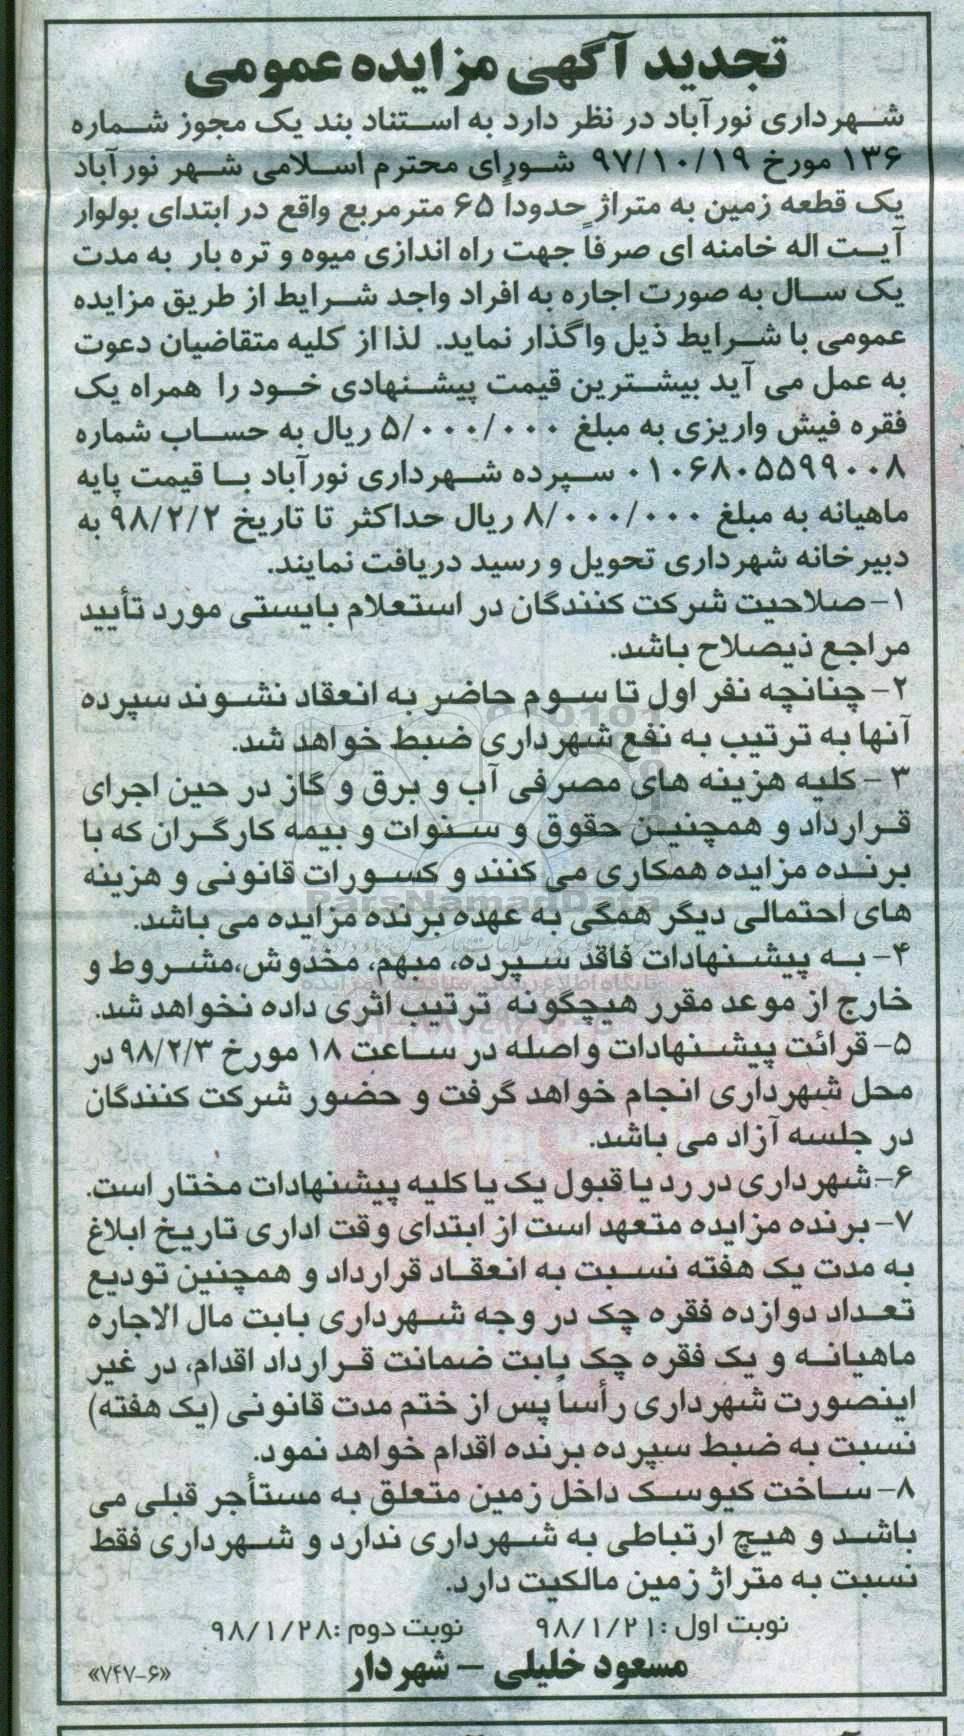 تجدید آگهی مزایده عمومی
شهرداری نورآباد در نظر دارد به استناد بند یک مجوز شماره
۱۳۶ مورخ ۹۷/۱۰/۱۹ شورای محترم اسلامی شهر نورآباد
یک قطعه زمین به متراژ حدوداً ۶۵ مترمربع واقع در ابتدای بولوار
آیت اله خامنه ای صرفاً جهت راه اندازی میوه و تره بار به مدت
یک سال به صورت اجاره به افراد واجد شرایط از طریق مزایده
عمومی با شرایط ذیل واگذار نماید. لذا از کلیه متقاضیان دعوت
به عمل می آید بیشترین قیمت پیشنهادی خود را همراه یک
فقره فیش واریزی به مبلغ ۵/۰۰۰/۰۰۰ ریال به حساب شماره
۰۱۰۶۸۰۵۵۹۹۰۰۸ سپرده شهرداری نورآباد با قیمت پایه
ماهیانه به مبلغ ۸/۰۰۰/۰۰۰ ریال حداکثر تا تاریخ ۹۸/۲/۲ به
دبیرخانه شهرداری تحویل و رسید دریافت نمایند.
۱- صلاحیت شرکت کنندگان در استعلام بایستی مورد تأیید
مراجع ذیصلاح باشد.
۲- چنانچه نفر اول تا سوم حاضر به انعقاد نشوند سپرده
آنها به ترتیب به نفع شهرداری ضبط خواهد شد.
۳- کلیه هزینه های مصرفی آب و برق و گاز در حین اجرای
قرارداد و همچنین حقوق و سنوات و بیمه کارگران که با
برنده مزایده همکاری می کنند و کسورات قانونی و هزینه
های احتمالی دیگر همگی به عهده برنده مزایده می باشد.
ParsNamadData
۴- به پیشنهادات فاقد سپرده، مبهم، مخدوش،مشروط و
پایگاه اطلاع رسانی مناقصه و مزایده
خارج از موعد مقرر هیچگونه ترتیب اثری داده نخواهد شد.
۵- قرائت پیشنهادات واصله در ساعت ۱۸ مورخ ۹۸/۲/۳ در
محل شهرداری انجام خواهد گرفت و حضور شرکت کنندگان
در جلسه آزاد می باشد.
۶- شهرداری در رد یا قبول یک یا کلیه پیشنهادات مختار است.
۷- برنده مزایده متعهد است از ابتدای وقت اداری تاریخ ابلاغ
به مدت یک هفته نسبت به انعقاد قرارداد و همچنین تودیع
تعداد دوازده فقره چک در وجه شهرداری بابت مال الاجاره
ماهیانه و یک فقره چک بابت ضمانت قرارداد اقدام، در غیر
اینصورت شهرداری رأساً پس از ختم مدت قانونی (یک هفته)
نسبت به ضبط سپرده برنده اقدام خواهد نمود.
۸- ساخت کیوسک داخل زمین متعلق به مستأجر قبلی می
باشد و هیچ ارتباطی به شهرداری ندارد و شهرداری فقط
نسبت به متراژ زمین مالکیت دارد.
نوبت اول :۹۸/۱/۲۱ نوبت دوم :۹۸/۱/۲۸
مسعود خلیلی - شهردار
«۷۴۷-۶»